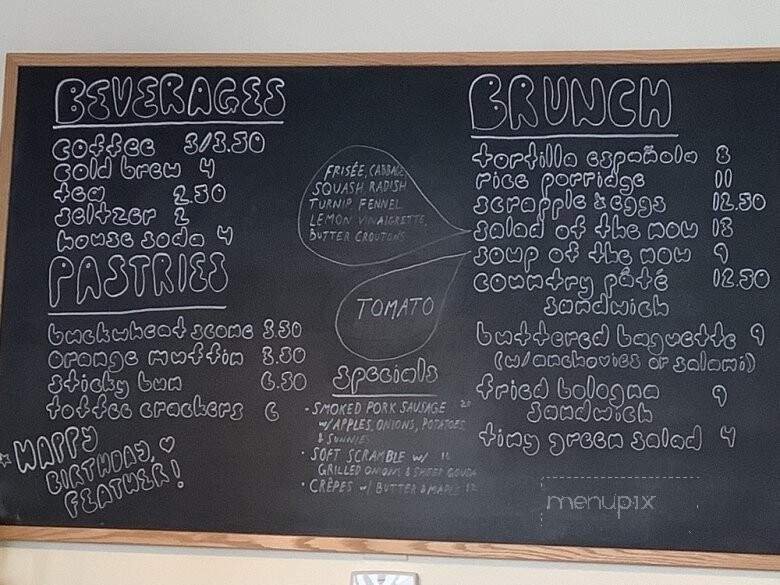 BEVERAGES
coffee 3/3.50
cold brew 4
tea 2.50
seltzer 2
house soda 4
PASTRIES
buckwheat scone 3.50
orange muffin 3.50
sticky bun 6.50
toffee crackers 6
HAPPY
BIRTHDAY,
FEATHER!
FRISÉE, CABBAGE
SQUASH, RADISH
TURNIP FENNEL
LEMON VINAIGRETTE,
BUTTER CROUTONS
TOMATO
specials
• SMOKED PORK SAUSAGE 20
w/ APPLES, ONIONS, POTATOES
& SUNNIES
• SOFT SCRAMBLE w/
GRILLED ONIONS & SHEEP GOUDA
• CRÊPES w/ BUTTER & MAPLE 12
BRUNCH
tortilla española 8
rice porridge 11
scrapple & eggs 12.50
salad of the now 13
soup of the now 9
country pâté 12.50
sandwich
buttered baguette 9
(w/anchovies or salami)
fried bologna 9
sandwich
tiny green salad 4
menupix